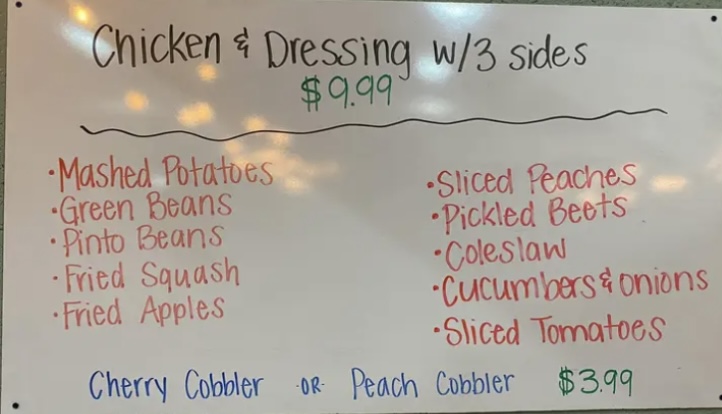 Chicken & Dressing w/3 sides
$9.99
•Mashed Potatoes
•Green Beans
•Pinto Beans
•Fried Squash
•Fried Apples
•Sliced Peaches
•Pickled Beets
•Coleslaw
•Cucumbers & Onions
•Sliced Tomatoes
Cherry Cobbler -OR- Peach Cobbler $3.99